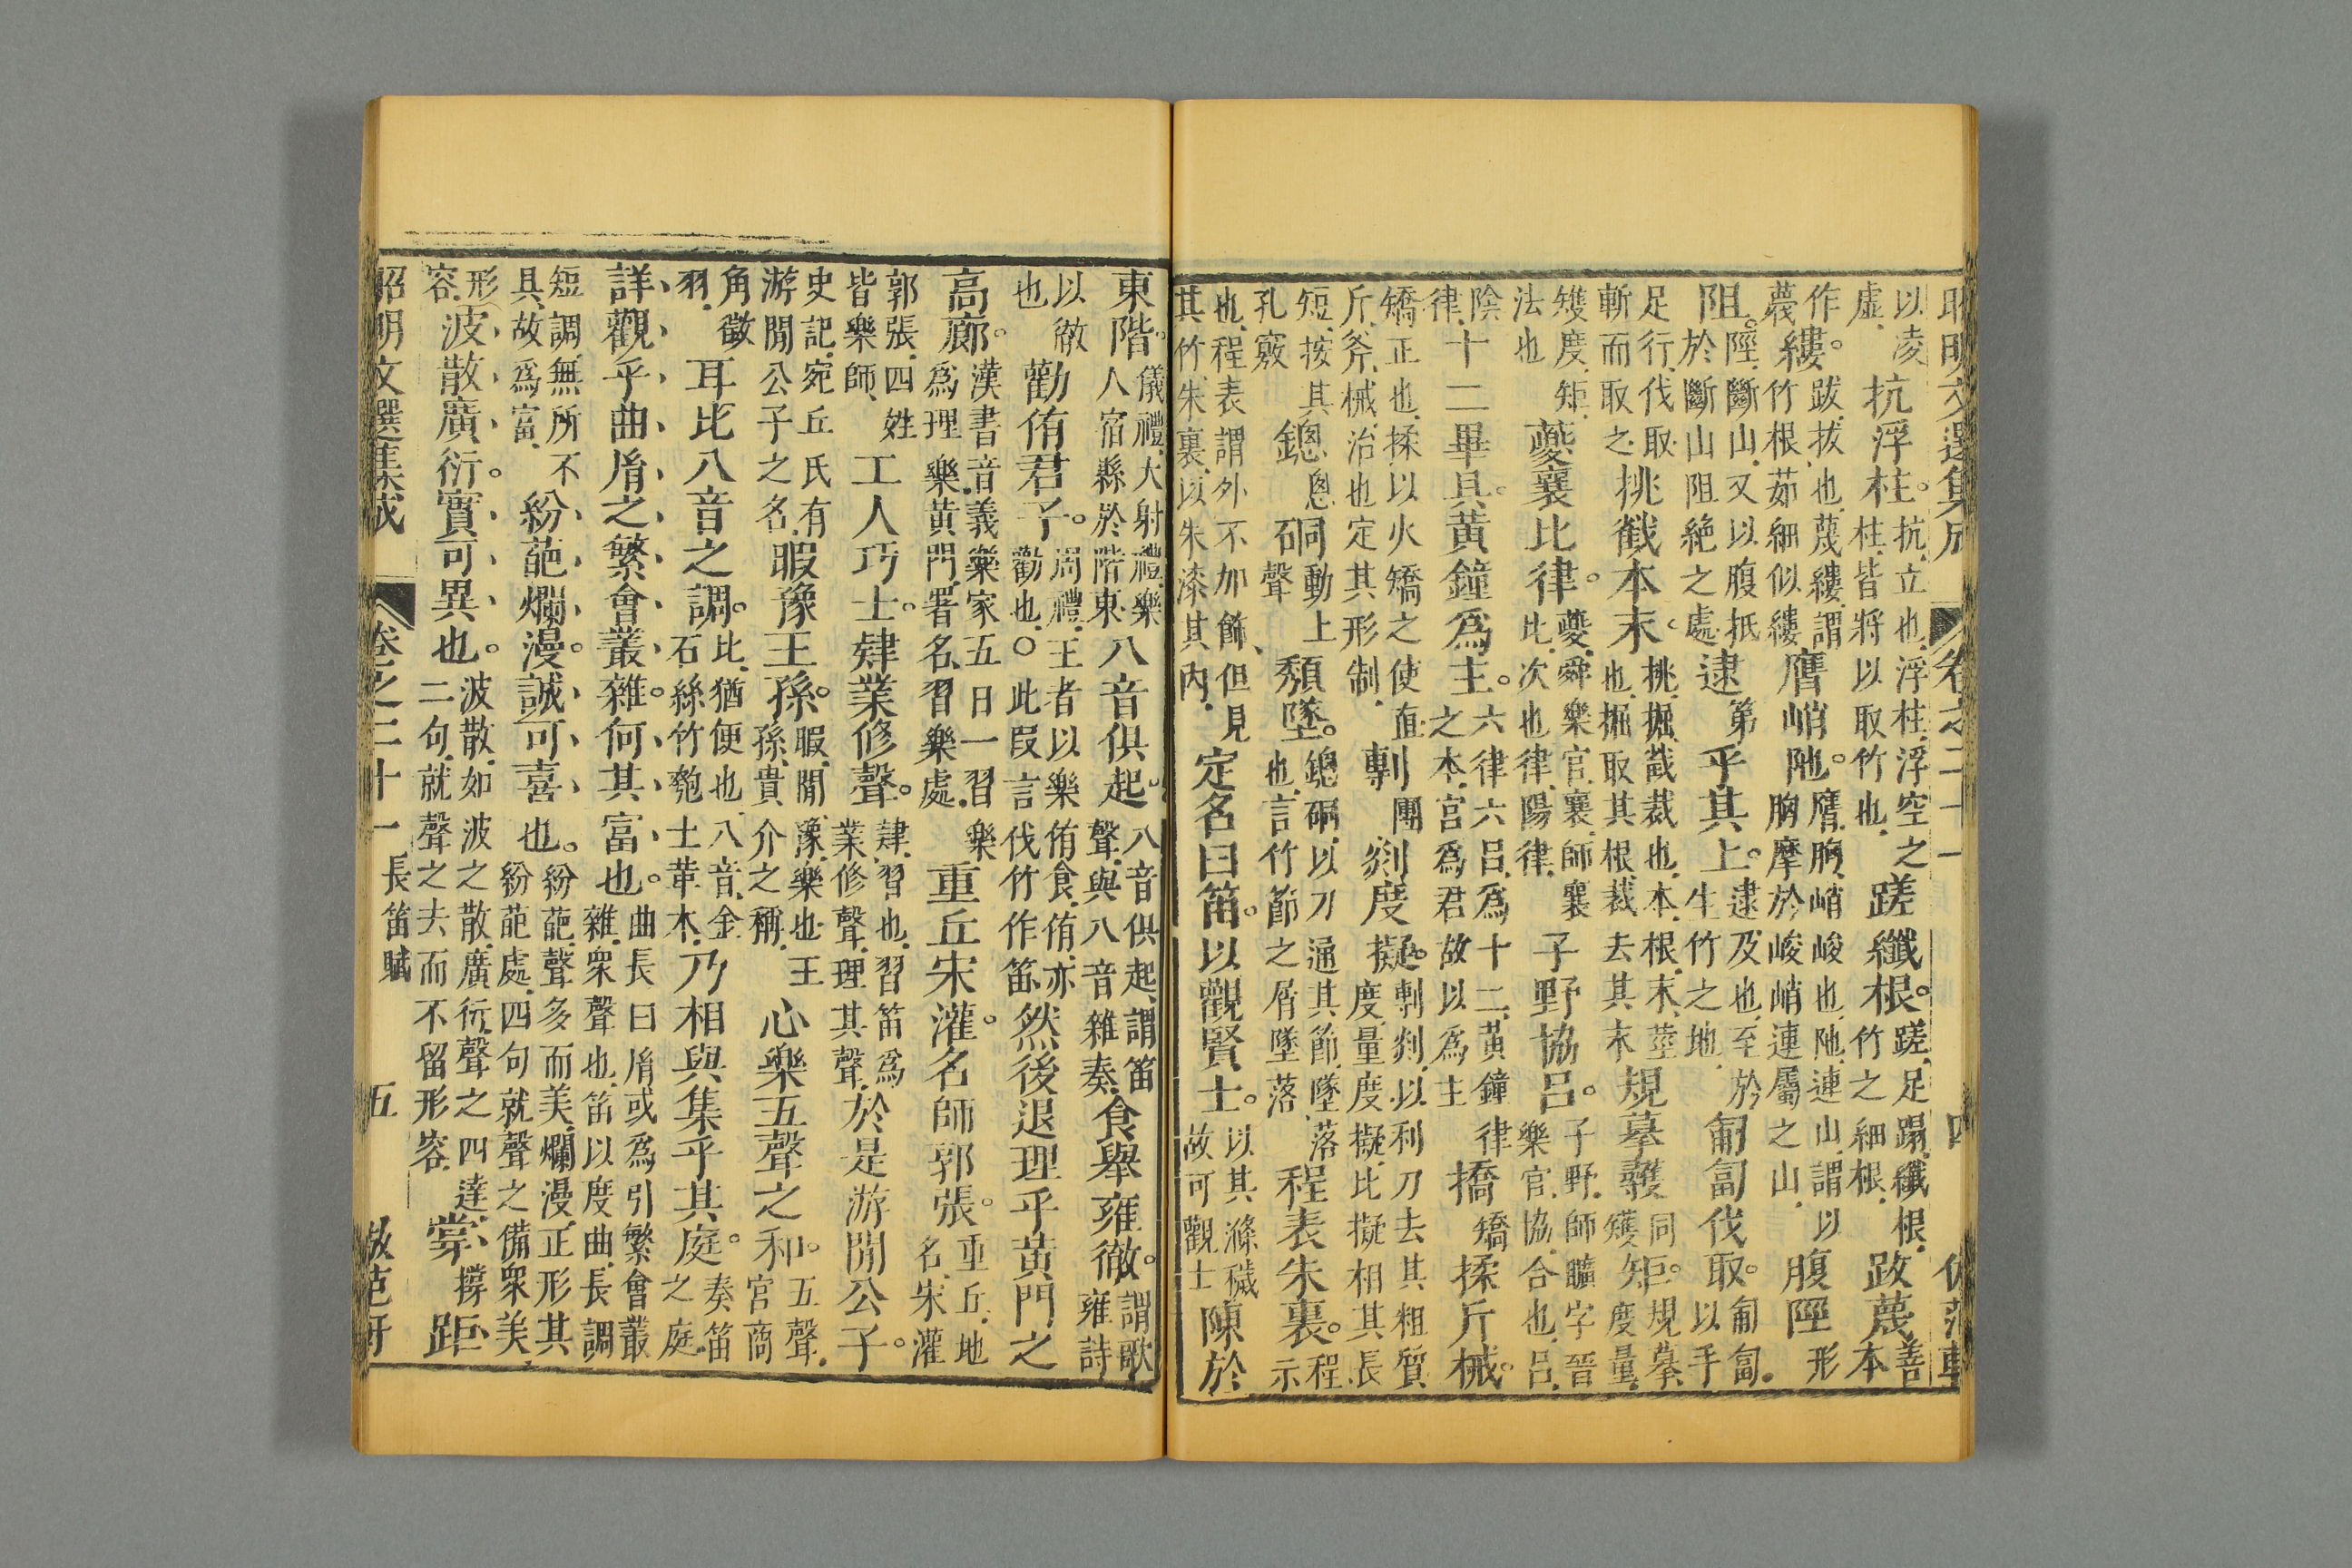 昭明文選集成　卷之二十一　四　倣范軒
以凌虛。抗浮柱。抗立也浮柱浮空之柱皆將以取竹也蹉纖根。蹉足蹋纖根竹之細根跂蔑善本
作蔑縷。跋拔也蔑縷謂竹根茹細似縷膺峭阤。膺胸峭峻也阤連山謂以胸摩於峻峭連屬之山腹陘形
阻。陘斷山又以腹抵於斷山阻絶之處逮第乎其上。逮及也至於生竹之地匍匐伐取。匍匐以手
足行伐取斬而取之挑截本末。挑掘截裁也本根末莖也掘取其根裁去其末規摹彠矱同矩。規摹度量
矱度矩法也夔襄比律。夔舜樂官襄師襄比次也律陽律子野協呂。子野師曠字晉樂官協合也呂
陰律十二畢具。黃鐘為主。六律六呂為十二黃鐘律之本宮為君故以為主撟矯揉斤械。
矯正也揉以火矯之使直斤斧械治也定其形制剸團剡度擬。剸剡以利刀去其粗質度量度擬比擬相其長
短按其孔竅鏓悤硐動上聲隤墜。鏓硐以刀通其節墜落也言竹節之屑墜落程表朱裏。程示
也程表謂外不加飾但見其竹朱裏以朱漆其內定名曰笛。以觀賢士。以其滌穢故可觀士陳於
東階。儀禮大射禮樂人宿縣於階東八音俱起。八音俱起謂笛聲與八音雜奏食舉雍徹。謂歌雍詩
以徹也勸侑君子。周禮王者以樂侑食侑亦勸也〇此叚言伐竹作笛然後退理乎黃門之
高廊。漢書音義樂家五日一習樂為理樂黃門署名習樂處重丘宋灌。名師郭張。重丘地名宋灌
郭張四姓皆樂師工人巧士。肄業修聲。肄習也習笛為業修聲理其聲於是游閒公子。
史記宛丘氏有游閒公子之名暇豫王孫。暇閒豫樂也王孫貴介之稱心樂五聲之和。五聲宮商
角徵羽耳比八音之調。比猶便也八音金石絲竹匏土革木乃相與集乎其庭。奏笛之庭
詳觀乎曲㣧之繁會叢雜。何其富也。曲長曰㣧或為引繁會叢雜眾聲也笛以度曲長調
短調無所不具故為富紛葩爛漫。誠可喜也。紛葩聲多而美爛漫正形其紛葩處四句就聲之備眾美
形容波散廣衍。實可異也。波散如波之散廣衍聲之四達二句就聲之去而不留形容牚撐距
昭明文選集成　卷之二十一　長笛賦　五　倣范軒